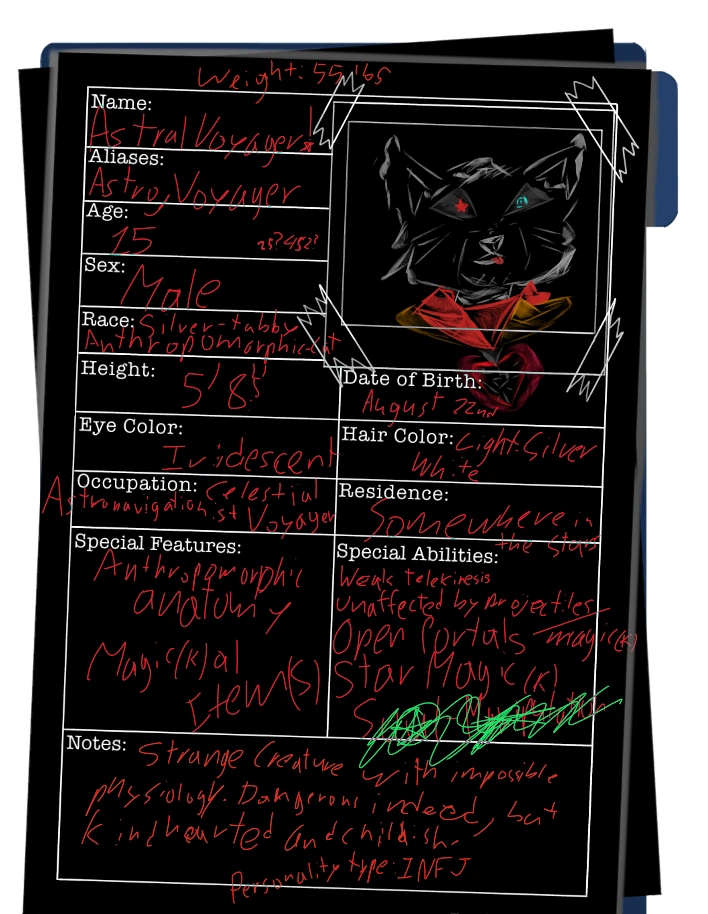 Weight: 55 lbs
Name:
Astral Voyager!
Aliases:
Astro, Voyager
Age:
15
Sex:
Male
Race: Silver-tabby
Anthropomorphic-cat
Height:
5'8"
Date of Birth:
August 22nd
Eye Color:
Iridescent
Hair Color: Light-Silver
White
Occupation: Celestial
Astronavigationist Voyager
Residence:
Somewhere in
the stars
Special Features:
Anthropomorphic
anatomy
Magic(k)al
Item(s)
Special Abilities:
Weak telekinesis
unaffected by projectiles/
magic(k)
Open Portals
Star Magic(k)
Notes: Strange Creature with impossible
physiology. Dangerous indeed, but
kindhearted and childish.
Personality type: INFJ